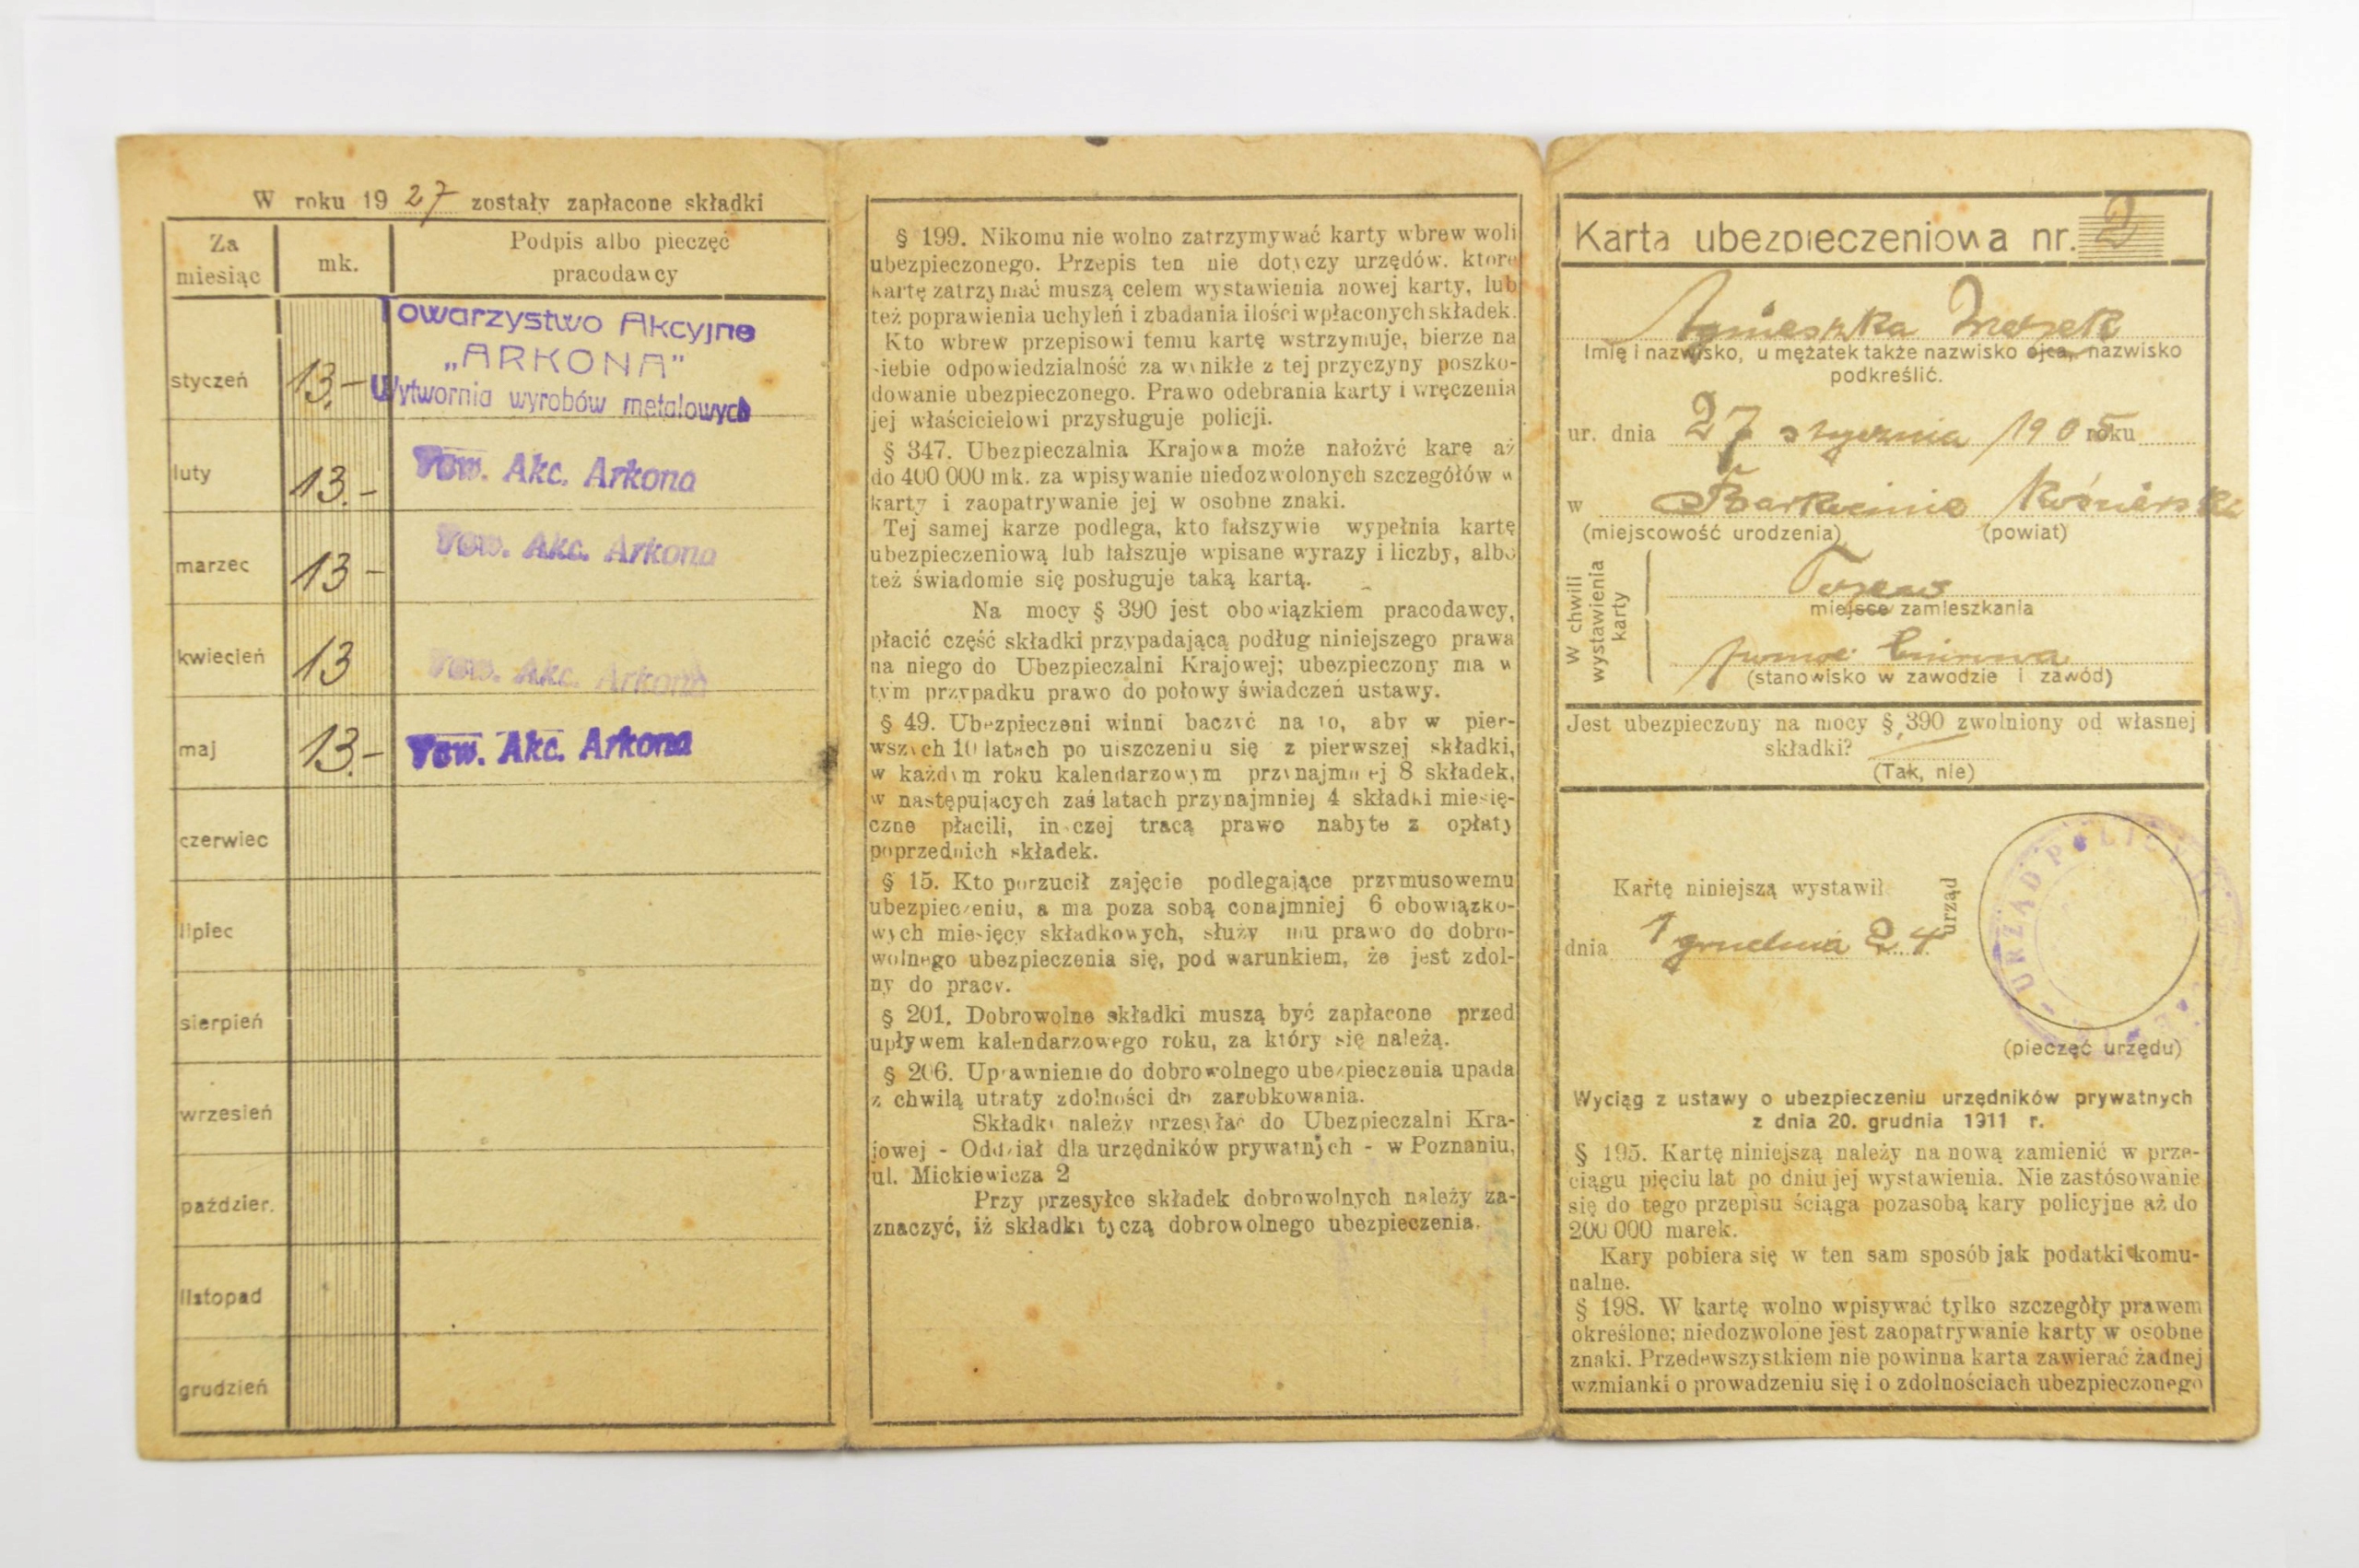 W roku 1927 zostały zapłacone składki
Za miesiąc
mk.
Podpis albo pieczęć pracodawcy
styczeń 13.-
Towarzystwo Akcyjne
„ARKONA"
Wytwornia wyrobów metalowych
luty 13.- Tow. Akc. Arkona
marzec 13- Tow. Akc. Arkona
kwiecień 13 Tow. Akc. Arkona
maj 13.- Tow. Akc. Arkona
czerwiec
lipiec
sierpień
wrzesień
paździer.
listopad
grudzień
§ 199. Nikomu nie wolno zatrzymywać karty wbrew woli
ubezpieczonego. Przepis ten nie dotyczy urzędów. które
kartę zatrzymać muszą celem wystawienia nowej karty, lub
też poprawienia uchyleń i zbadania ilości wpłaconych składek.
Kto wbrew przepisowi temu kartę wstrzymuje, bierze na
siebie odpowiedzialność za wynikłe z tej przyczyny poszko-
dowanie ubezpieczonego. Prawo odebrania karty i wręczenia
jej właścicielowi przysługuje policji.
§ 347. Ubezpieczalnia Krajowa może nałożyć karę aż
do 400 000 mk. za wpisywanie niedozwolonych szczegółów w
karty i zaopatrywanie jej w osobne znaki.
Tej samej karze podlega, kto fałszywie wypełnia kartę
ubezpieczeniową lub fałszuje wpisane wyrazy i liczby, albo
też świadomie się posługuje taką kartą.
Na mocy § 390 jest obowiązkiem pracodawcy,
płacić część składki przypadającą podług niniejszego prawa
na niego do Ubezpieczalni Krajowej; ubezpieczony ma w
tym przypadku prawo do połowy świadczeń ustawy.
§ 49. Ubezpieczeni winni baczyć na to, aby w pier-
wszych 10 latach po uiszczeniu się z pierwszej składki,
w każdym roku kalendarzowym przynajmniej 8 składek,
w następujących zaś latach przynajmniej 4 składki miesię-
czne płacili, inaczej tracą prawo nabyte z opłaty
poprzednich składek.
§ 15. Kto porzucił zajęcie podlegające przymusowemu
ubezpieczeniu, a ma poza sobą conajmniej 6 obowiązko-
wych miesięcy składkowych, służy mu prawo do dobro-
wolnego ubezpieczenia się, pod warunkiem, że jest zdol-
ny do pracy.
§ 201. Dobrowolne składki muszą być zapłacone przed
upływem kalendarzowego roku, za który się należą.
§ 206. Uprawnienie do dobrowolnego ubezpieczenia upada
z chwilą utraty zdolności do zarobkowania.
Składki należy przesyłać do Ubezpieczalni Kra-
jowej - Oddział dla urzędników prywatnych - w Poznaniu,
ul. Mickiewicza 2
Przy przesyłce składek dobrowolnych należy za-
znaczyć, iż składki tyczą dobrowolnego ubezpieczenia.
Karta ubezpieczeniowa nr. 2
Agnieszka
Imię i nazwisko, u mężatek także nazwisko ojca, nazwisko
podkreślić.
ur. dnia 27 stycznia 1905 roku
w
(miejscowość urodzenia) (powiat)
W chwili wystawienia karty
Tczew
miejsce zamieszkania
(stanowisko w zawodzie i zawód)
Jest ubezpieczony na mocy § 390 zwolniony od własnej
składki?
(Tak, nie)
Kartę niniejszą wystawił
urząd
dnia 1 grudnia 24
URZĄD POLICYJNY
(pieczęć urzędu)
Wyciąg z ustawy o ubezpieczeniu urzędników prywatnych
z dnia 20. grudnia 1911 r.
§ 195. Kartę niniejszą należy na nową zamienić w prze-
ciągu pięciu lat po dniu jej wystawienia. Nie zastósowanie
się do tego przepisu ściąga pozasobą kary policyjne aż do
200 000 marek.
Kary pobiera się w ten sam sposób jak podatki komu-
nalne.
§ 198. W kartę wolno wpisywać tylko szczegóły prawem
określone; niedozwolone jest zaopatrywanie karty w osobne
znaki. Przedewszystkiem nie powinna karta zawierać żadnej
wzmianki o prowadzeniu się i o zdolnościach ubezpieczonego